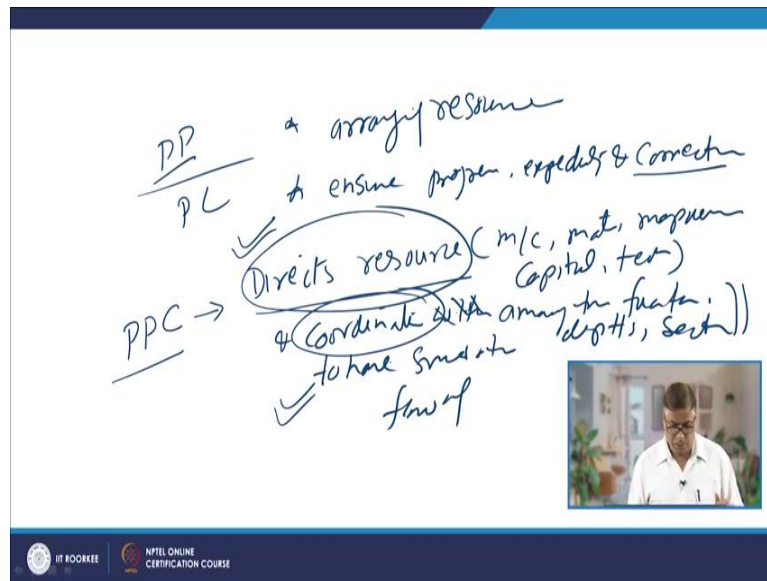 PP * arranging resource
PC * ensure progress, expediting & Correctn
PPC → Directs resource (m/c, mat, manpower
Capital, tech)
& Coordinate among the
depts, Sectn))
to have smooth
flow of
IIT ROORKEE
NPTEL ONLINE
CERTIFICATION COURSE